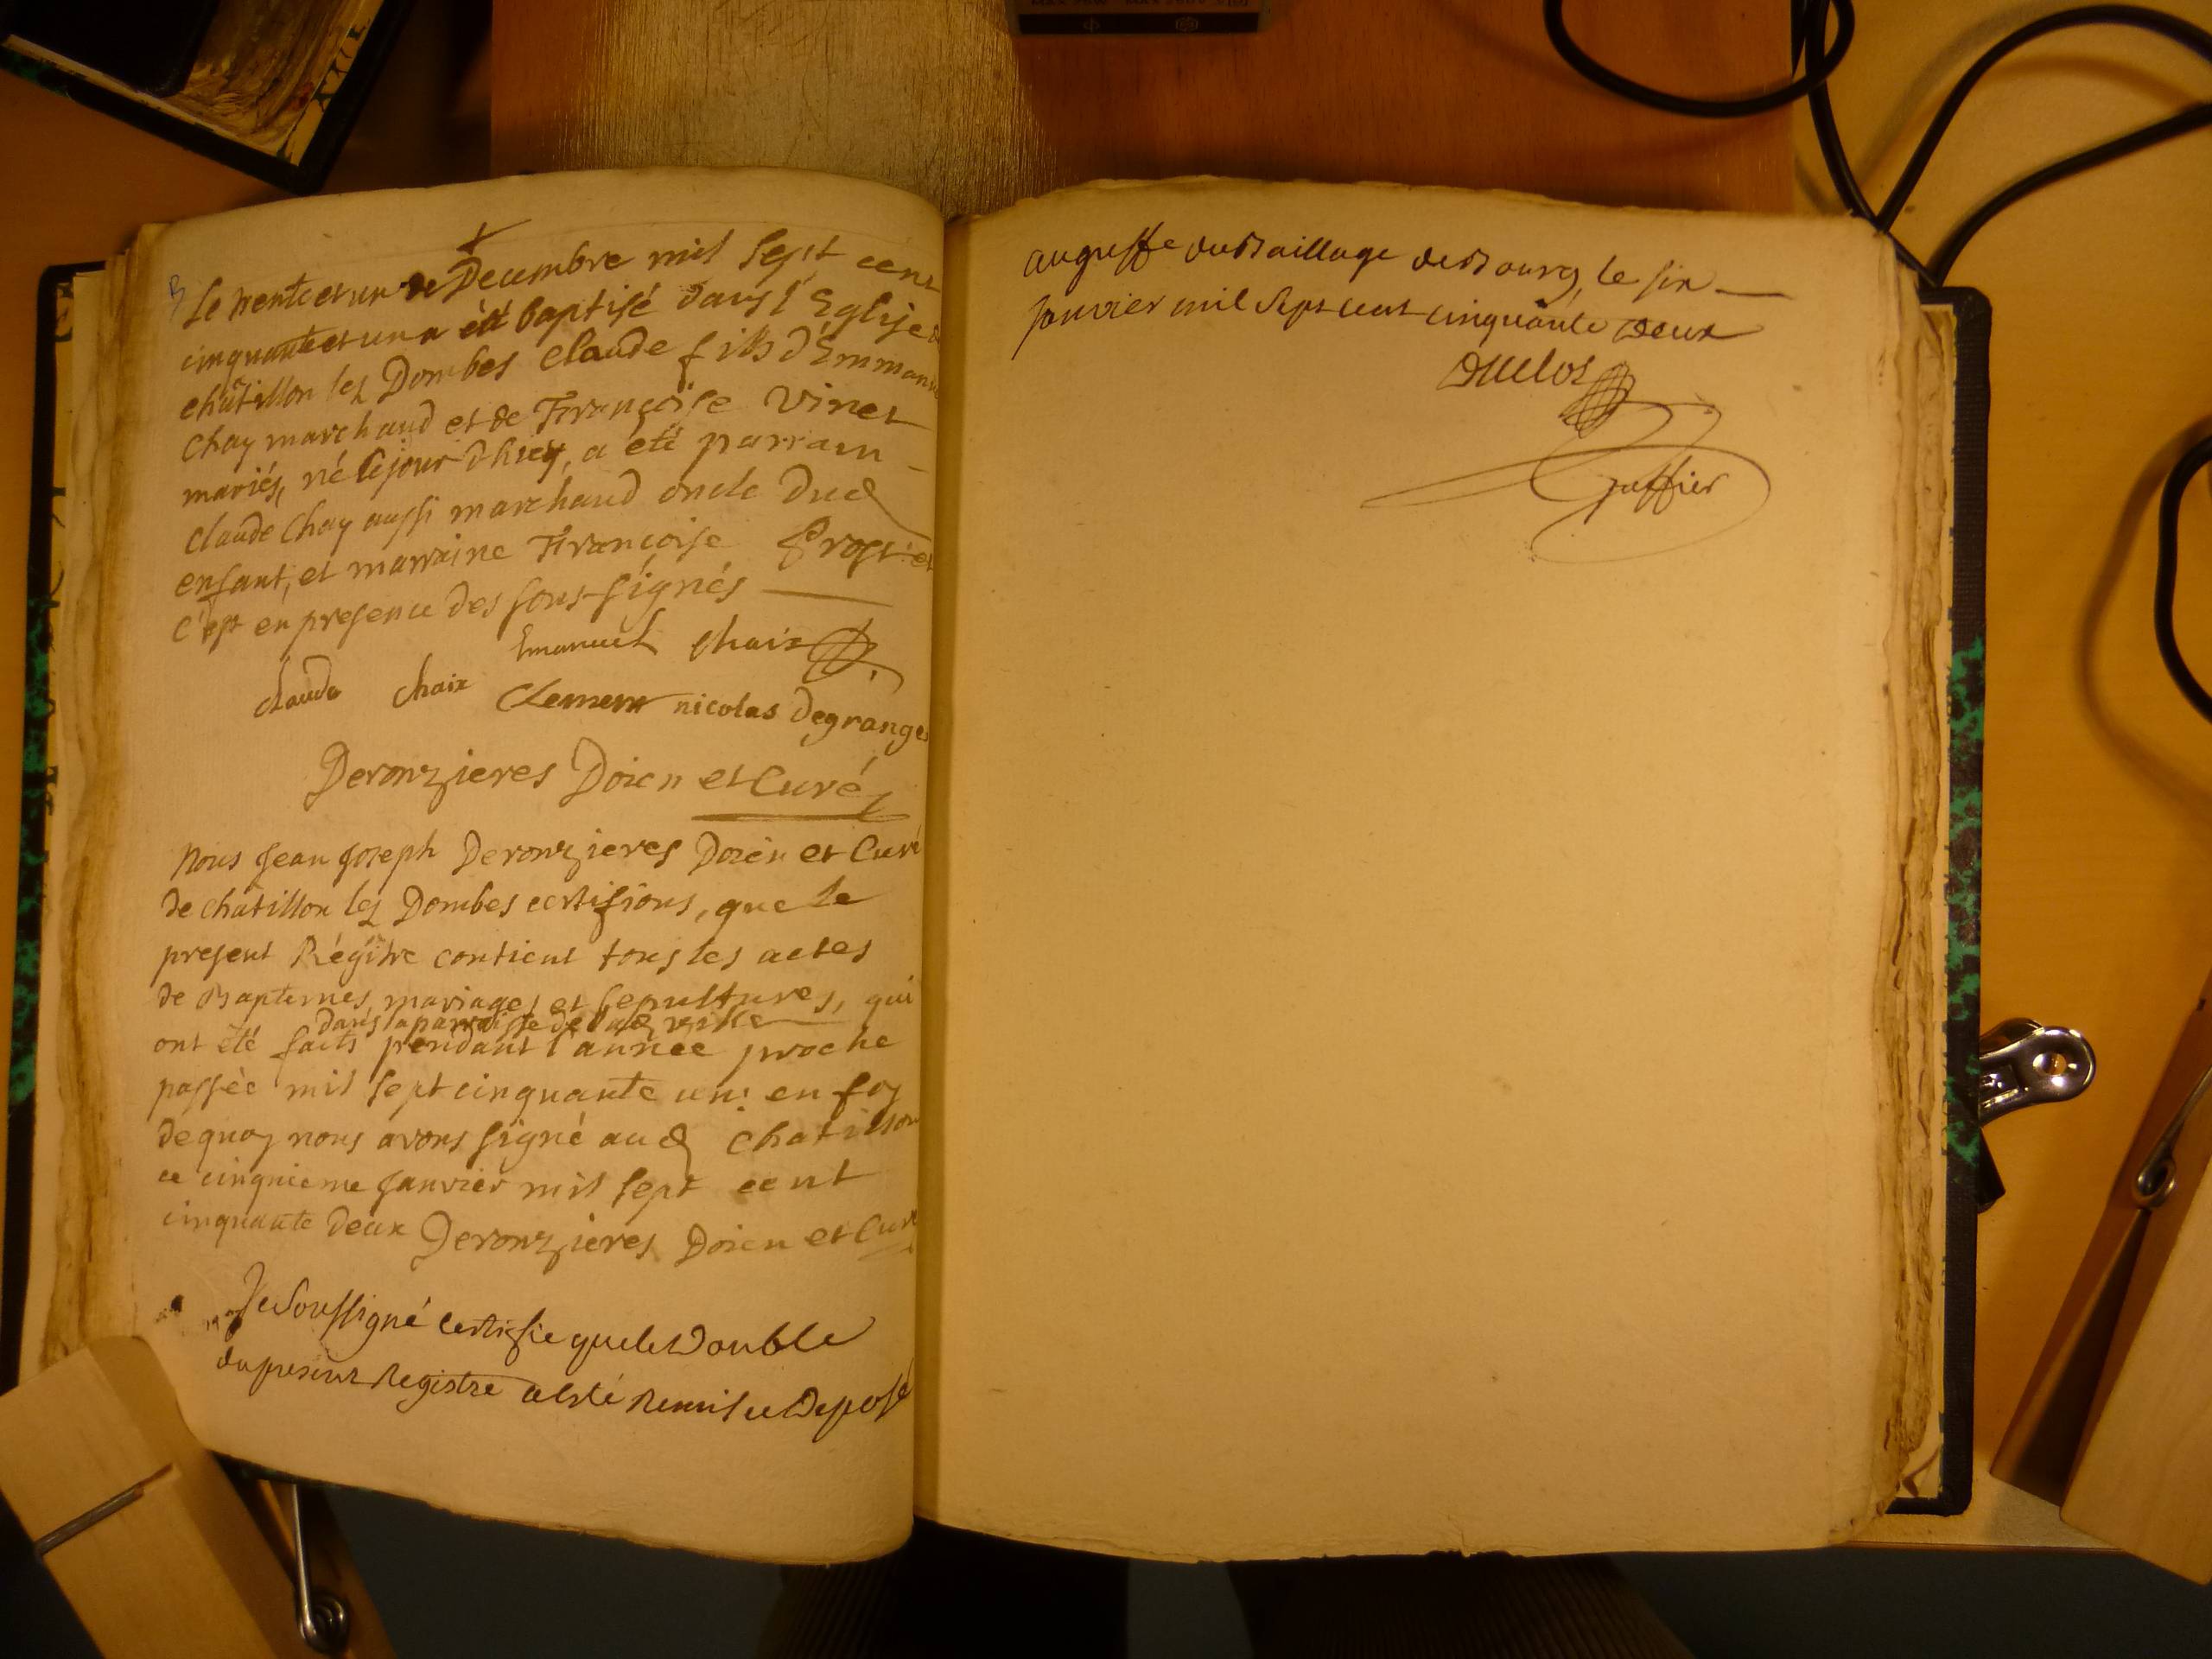 Le trente et un de Decembre mil sept cent
cinquante et un a été baptisé dans l'Eglise de
châtillon lez Dombes claude fils d'Emmanuel
Chay marchand et de Françoise Vinet
mariés, né le jour d'hier, a été parrain
claude Chay aussi marchand oncle dud
enfant, et marraine Françoise
c'est en presence des sous-signés
Emanuel chaix
claude chaix Clement nicolas Degranges
Deronzieres Doien et Curé
Nous Jean Joseph Deronzieres Doien et Curé
de châtillon lez Dombes certifions, que le
present Régitre contient tous les actes
de Baptemes, mariages et sepultures, qui
dans la parroisse de lad ville
ont été faits pendant l'année proche
passée mil sept cinquante un: en foy
de quoy nous avons signé aud Chatillon
ce cinquieme Janvier mil sept cent
cinquante deux Deronzieres Doien et Curé
Je Soussigné certifie que le Double
du present Registre a esté Remis et Deposé
au greffe du Baillage de Bourg, le six
Janvier mil sept cent cinquante deux
Duclos
Greffier